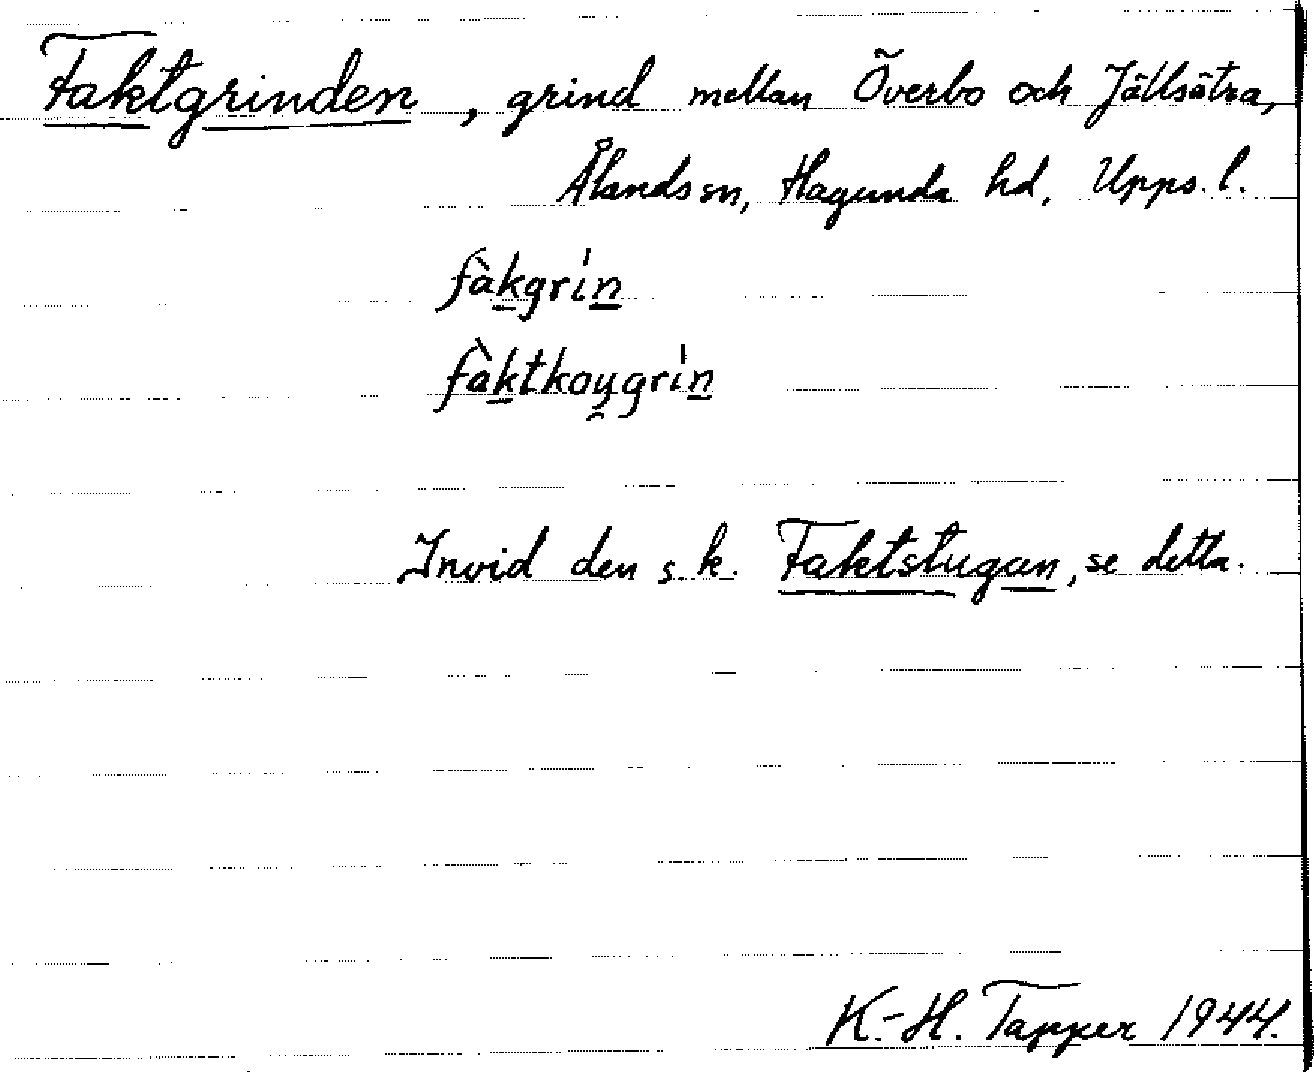 Faktgrinden, grind mellan Överbo och Jällsätra,
Ålands sn, Hagunda hd, Upps. l.
fàkgrin
fàktkoŋgrin
Invid den s.k. Faktstugan, se detta.
K.-H. Tapper 1944.